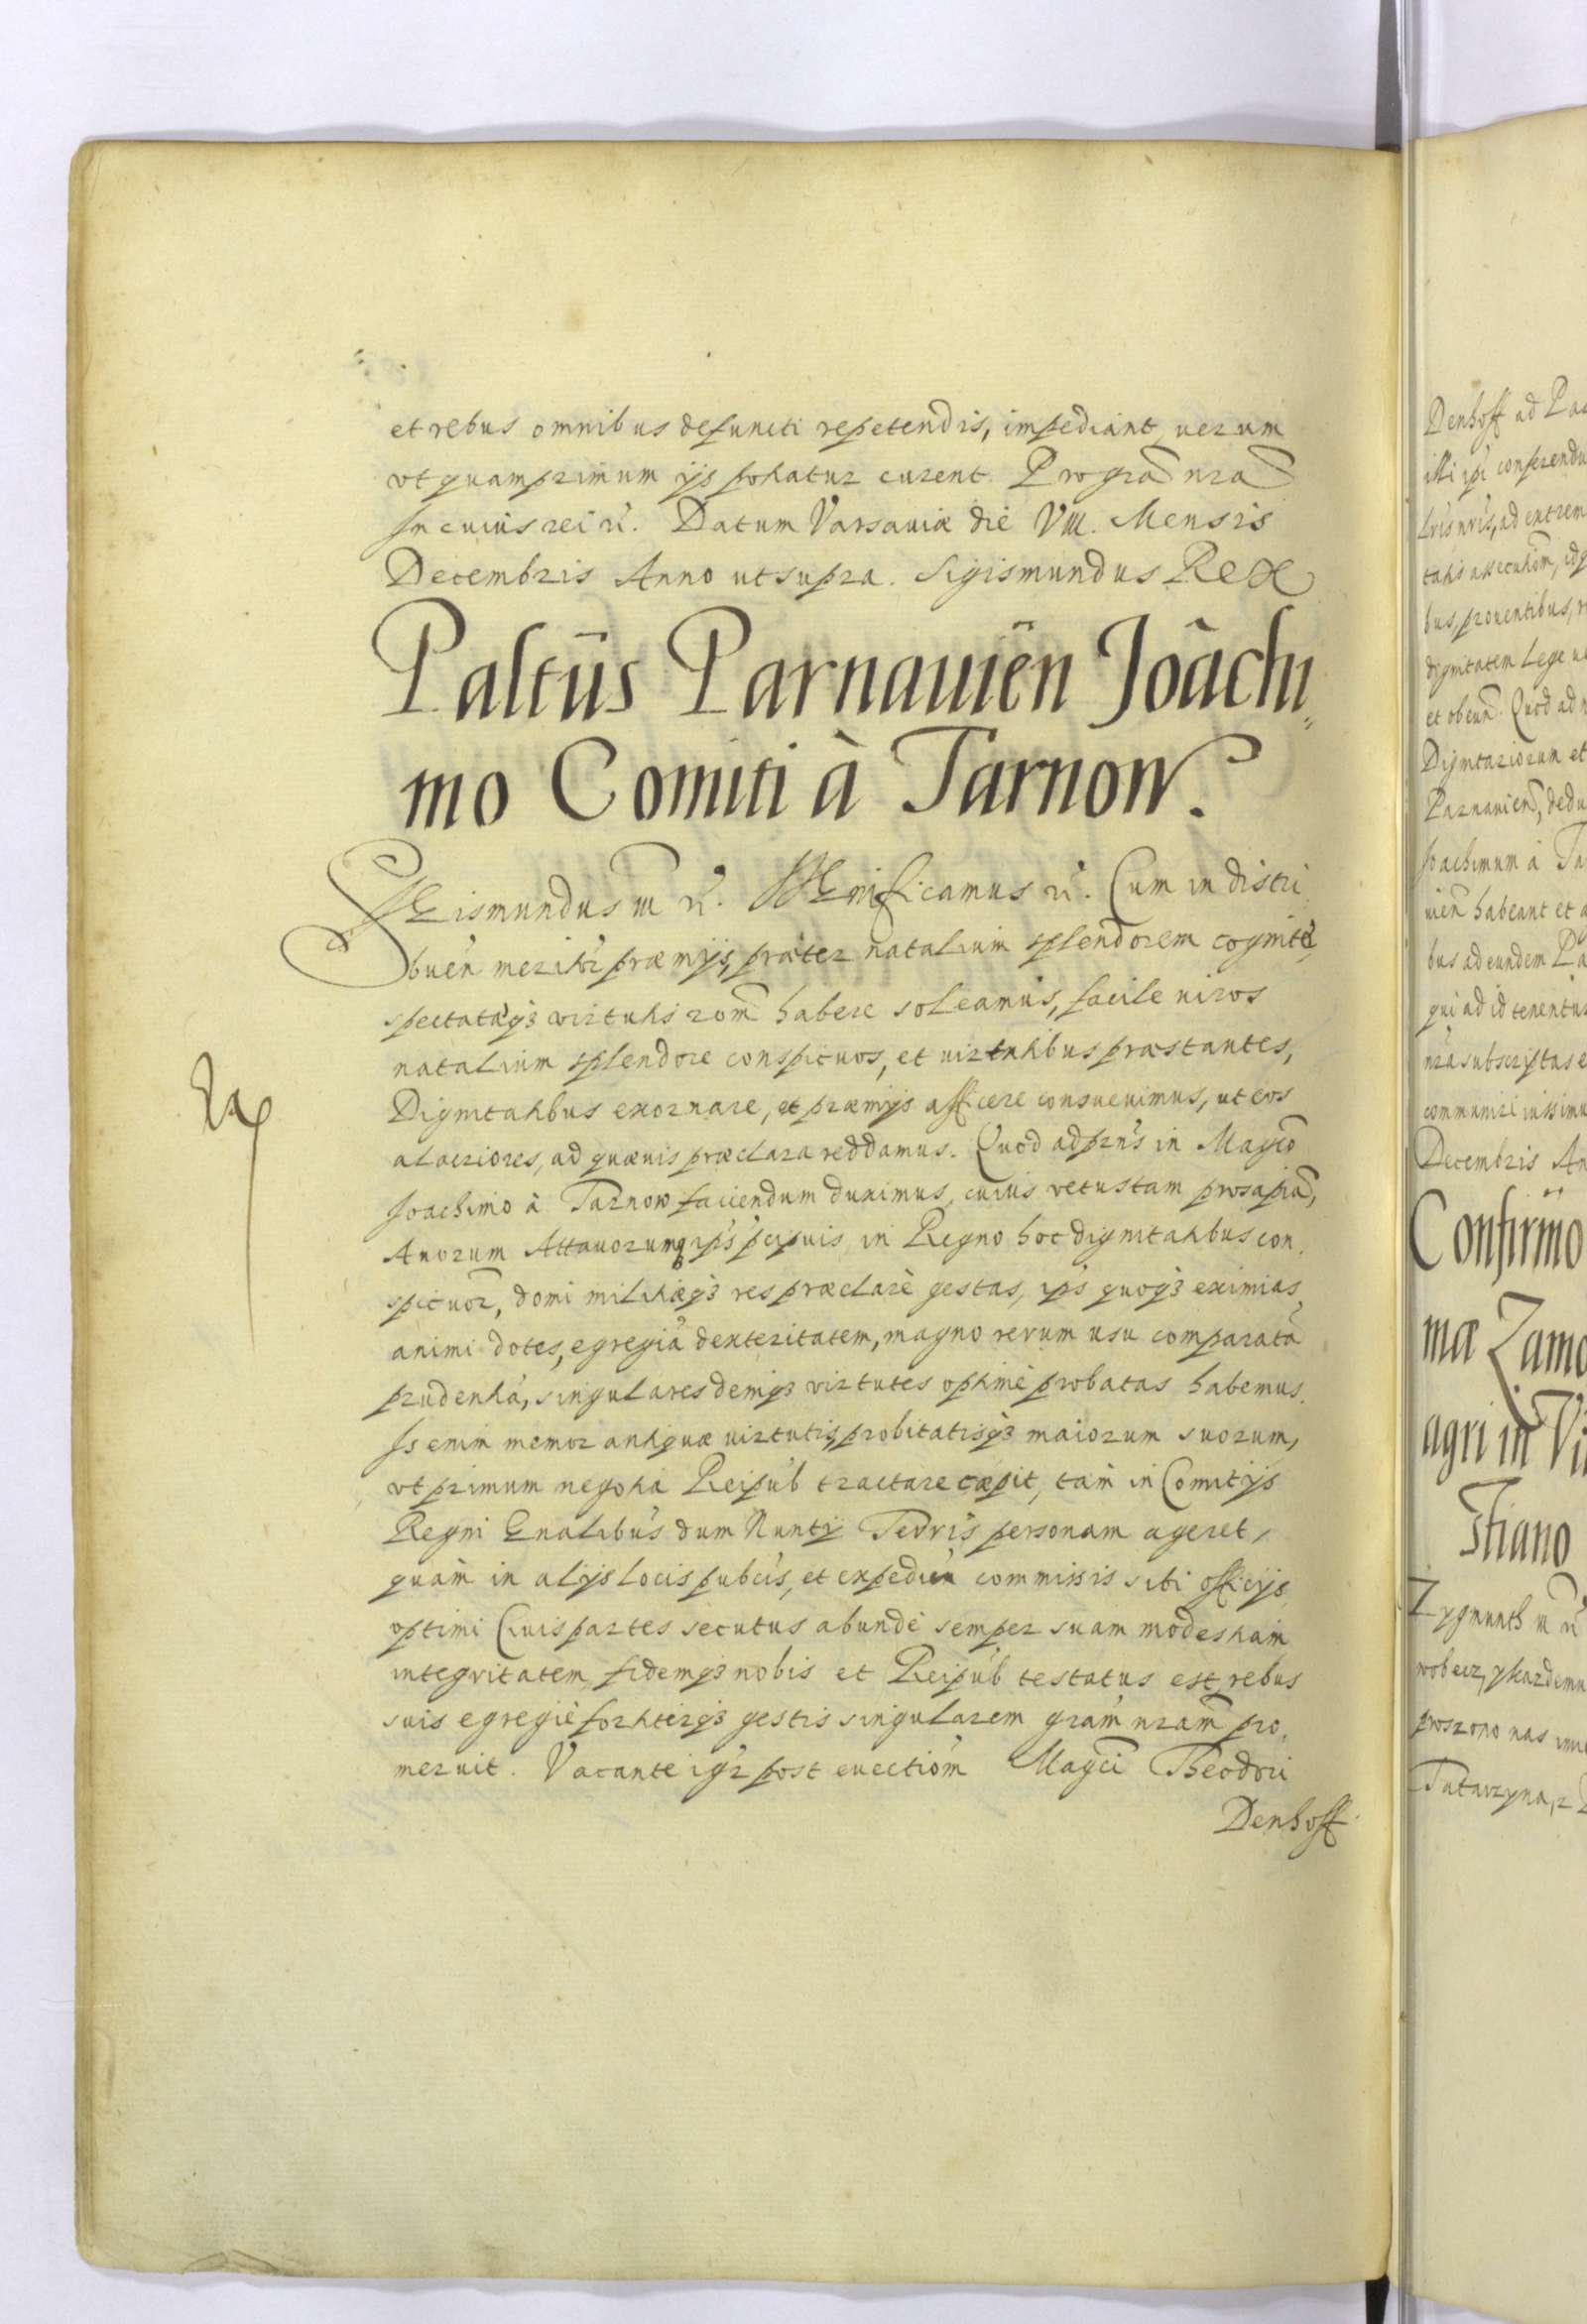 et rebus omnibus defuncti repetendis, impediant, uerum
vt quamprimum ijs potiatur curent. Pro gra͠ nra͠
In cuius rei rc̃. Datum Varsauiæ die VIII. Mensis
Decembris Anno ut supra. Sigismundus Rex
Paltũs Parnauiẽn Joachi„
mo Comiti à Tarnow.
Sigismundus III rc̃. Significamus rc̃. Cum in distri
buen̄ meritor̄ præmijs, præter natalium splendorem cognitę
spectatæqз virtutis rom̃ habere soleamus, facile uiros
natalium splendore conspicuos, et uirtutibus præstantes,
Dignitatibus exornare, et præmijs afficere consueuimus, ut eos
alacriores, ad quæuis præclara reddamus. Quod ad prn̄s in Magco
Joachimo à Tarnow faciendum duximus, cuius vetustam prosapiã,
Auorum Attauorumq ips̄ p̄cipuis in Regno hoc dignitatibus con
spicuor̄, domi militiæqз res præclarè gestas, ips̄ quoqз eximias
animi dotes, egregiã dexteritatem, magno rerum usu comparatã
prudentiã, singulares deniqз virtutes optimè probatas habemus.
Is enim memor antiquæ uirtutis, probitatisqз maiorum suorum,
vt primum negotia Reipub̄ tractare cæpit, tam in Comitijs
Regni Gnalibus̄ dum Nuntij Terrīs personam ageret,
quàm in alijs locis pubcīs, et expedien̄ commissis sibi officijs
optimi Ciuis partes secutus abundè semper suam modestiam
integritatem fidemqз nobis et Reipub̄ testatus est, rebus
suis egregiè fortiterqз gestis singularem gram̄ nram̄ pro„
meruit. Vacante igr̄ post euectiom̄ Magci Theodori
Denhoff
Denhoff ad Pa
illi ipī conferendu
Lrīs nrīs, ad extrem
bus, prouentibus, r
dignitatem Lege u
et obeun̄. Quod ad n
Dignitariorum et
Parnauien̄, dedu
Joachimum à Ta
uien̄ habeant et a
bus ad eundem Pa
qui ad id tenentur
nra subscriptas e
communiri iussimu
Decembris An
Confirmo
ma Zamo
agri in Vi
stiano
Zygmunth III rc̃
wobecz, y kazdemu
proszono nas imi